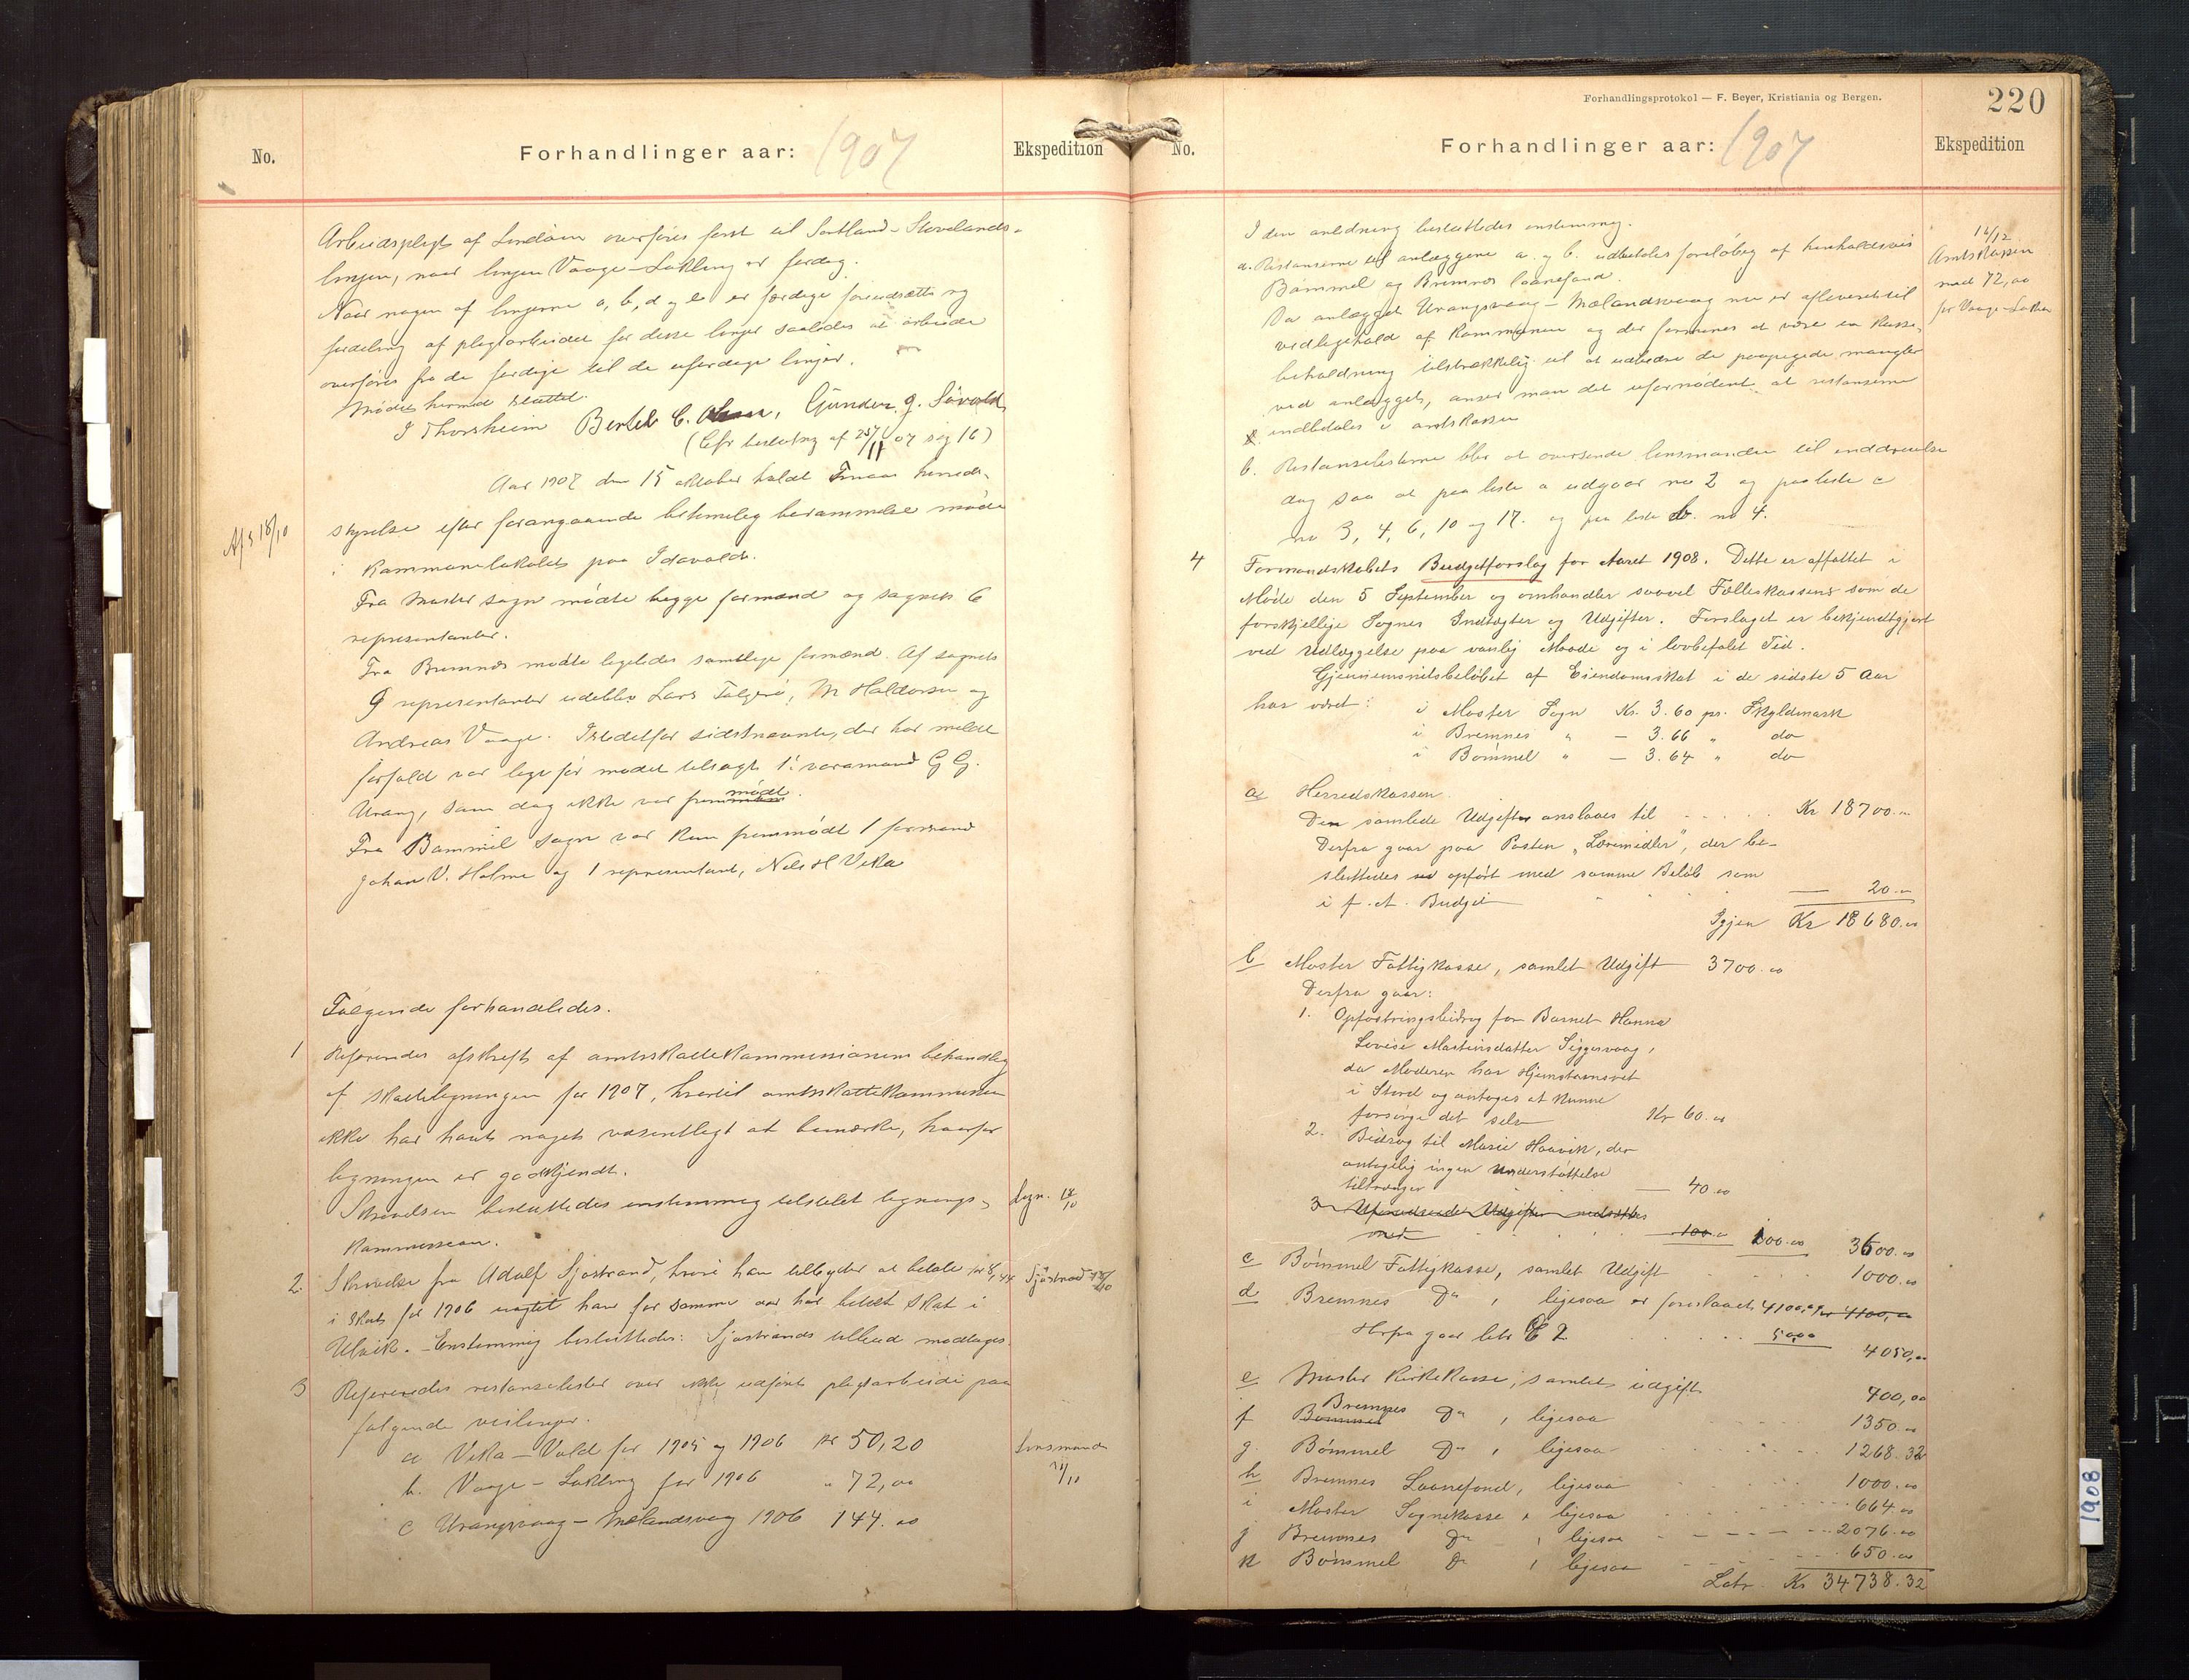 No.
Forhandlinger aar: 1907
Ekspedition
Arbeidspligt af overføres først til Sortland - Stovelands-
linjen, naar linjen Vaage - Løkling er færdig.
Naar nogen af linjerne a, b, d og e er færdige forudsættes ny
fordeling af pligtarbeidet for disse linjer saaledes at arbeide
overføres fra de færdige til de uferdige linjer.
Mødet hermed sluttet.
J Thorsheim Bertel C. Gunder G. Søvold
(Cfr beslutning af 25/11 07 sag 16)
Afs 18/10
Aar 1907 den 15 oktober holdt Finaas herreds-
styrelse efter forangaaende betimelig berammelse møde
i kommunelokalet paa Idavold.
Fra Moster sogn mødte begge formænd og sognets 6
representanter.
Fra Bremnes mødte ligeledes samtlige formænd. Af sognets
9 representanter udeblev Lars Folgerø, M Haldorsen og
Andreas Vaage. Istedetfor sidstnævnte, der har meldt
forfald var lige før mødet tilsagt 1: varamand G G.
Urang, som dog ikke var frem mødt.
Fra Bømmel sogn var kun fremmødt 1 formand
Johan V. Holme og 1 representant, Nils H Vika
Følgende forhandledes.
1 Refereredes afskrift af amtsskattekommissionens behandling
af skattelegningen for 1907, hvortil amtsskattekommissionen
ikke har havt noget væsentligt at bemærke, hvorfor
ligningen er godkjendt.
Skrivelsen besluttedes enstemmig tilstillet lignings-
kommissionen.
Lign. 18/10
2. Skrivelse fra Adolf Sjøstrand, hvori han tilbyder at betale kr 8,44
i skat for 1906 uagtet han for samme aar har betalt skat i
Ulvik. - Enstemmig besluttedes: Sjøstrands tilbud modtages.
Sjøstrand 18/10
3 Refereredes restanselister over ikke udført pligtarbeide paa
følgende veilinjer.
a Vika - Vold for 1905 og 1906 kr 50,20
b. Vaage - Løkling for 1906 " 72,00
c Urangsvaag - Mælandsvaag 1906 144.00
Lensmand
/10
Forhandlingsprotokol — F. Beyer, Kristiania og Bergen.
220
No.
Forhandlinger aar: 1907
Ekspedition
I den anledning besluttedes enstemmig.
a. Restanserne til anlæggene a. og b. udbetales foreløbig af henholdsvis
Bømmel og Bremnes laanefond.
Da anlægget Urangsvaag - Mælandsvaag nu er afleveret til
vedligehold af kommunen og der formenes at være en kasse-
beholdning tilstrækkelig til at udbedre de paapegede mangler
ved anlægget, anser man det ufornødent at restanserne
indbetales i amtskassen
14/12
Amtskassen
med 72,00
for Vaage - Løkling
b. Restanselisterne blir at oversende lensmanden til inddrivelse
dog saa at paa liste a udgaar no 2 og paa liste c
no 3, 4, 6, 10 og 17. og paa liste b. no 4.
4 Formandskabets Budgetforslag for Aaret 1908. Dette er affattet i
Møde den 5 September og omhandler saavel Fælleskassens som de
forskjellige Sognes Indtægter og Udgifter. Forslaget er bekjendtgjort
ved Udlæggelse paa vanlig Maade og i lovbefalet Tid.
Gjennemsnitsbeløbet af Eiendomsskat i de sidste 5 Aar
har været: i Moster Sogn Kr. 3.60 pr. Skyldmark
i Bremnes " — 3.66 " do
i Bømmel " — 3.64 " do
a, Herredskassen.
Den samlede Udgifter anslaaes til Kr 18700.00
Derfra gaar paa Posten "Læremidler", der be-
sluttedes opført med samme Beløb som
i f. A. Budget — 20.00
Igjen Kr 18680.00
b Moster Fattigkasse, samlet Udgift 3700.00
Derfra gaar:
1. Opfostringsbidrag for Barnet Hanna
Lovise Martinsdatter Siggjevaag,
da Moderen har Hjemstamsret
i Stord og antages at kunne
forsørge det selv Kr 60.00
2. Bidrag til Marie Haavik, der
antagelig ingen Understøttelse
tiltrænger — 40.00
3 Uforudseede Udgifter nedsættes
med 100.00 100.00 3600.00
c Bømmel Fattigkasse, samlet Udgift 1000.00
d Bremnes Do, ligesaa er foreslaaet 4100,00 4100,00
Herfra gaar litr C 2 50,00 4050,00
e Moster Kirkekasse, samlet udgift 400,00
f Bømmel Bremnes Do, ligesaa 1350.00
g. Bømmel Do, ligesaa 1268.32
h Bremnes Laanefond, ligesaa 1000.00
i Moster Sognekasse, ligesaa 664.00
j Bremnes Do, ligesaa 2076.00
k Bømmel Do, ligesaa 650.00
Latr. Kr 34738.32
1908